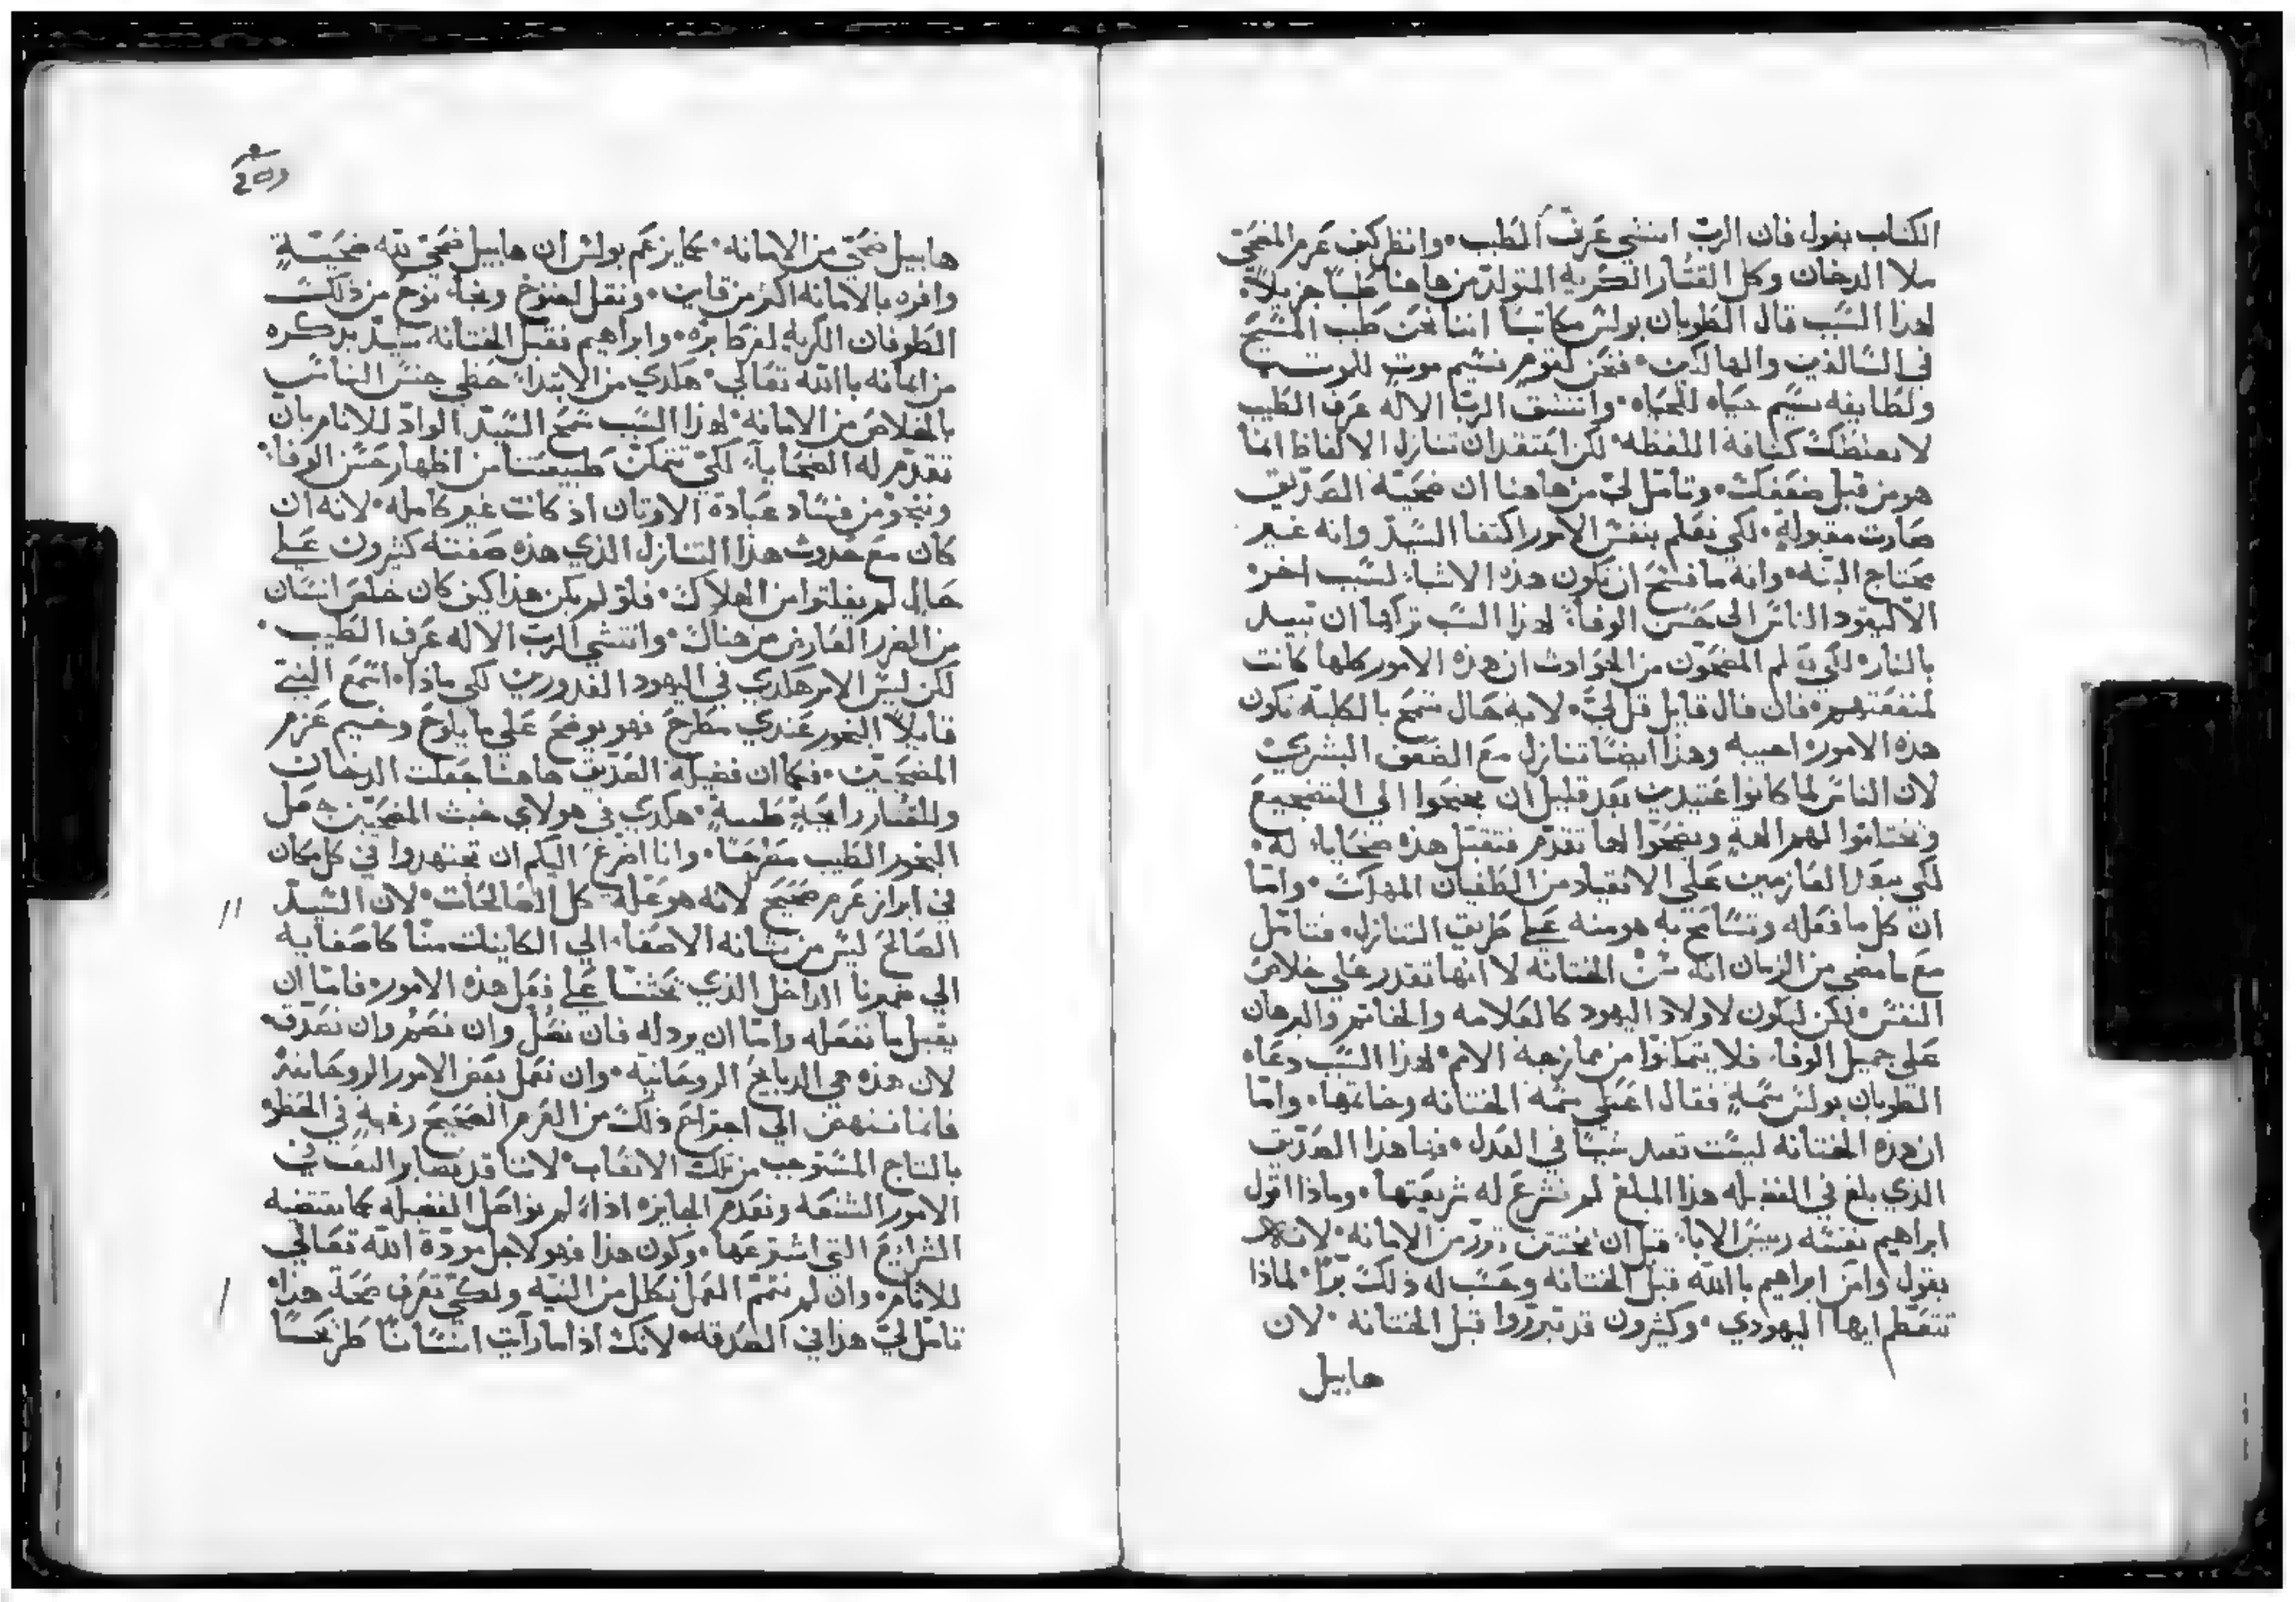 الكتاب يقول فان الربّ انتشى عَرف الطيب • وانظر كيف عَزم المضحّي
ملا الدخان وكل القتار الكريه المتولد من هاهنا طيبًا جزيلاً •
لهذا السَبب قال الطوبان بولسْ مكاتبًا اننا نحن طيب المسْيح
في السْالمين والهالكين • فنحن لقومٍ نسْيم موتٍ للموت
ولطايفه نسْيم حياه للحياه • وانتشق الربّ الاله عَرف الطيب
لا تعطك كثافة اللفظه • لكن اعتقد ان تنازل الالفاظ انما
هو من قبل ضعفك • وتامّل لي من هاهنا ان ضحيّة الصّدّيق
صارت مقبولةٍ • لكي نعَلم بنفسْ الامور اكتفا السْيّد وانه غير
محتاج البته • وانه ما فسْح ان تكون هذه الاشيا لسَبب اخر
الاّ ليقود الناسْ الى حسْن الوفا • لهذا السَبب تركها ان تبيد
بالنار لكي يعَلم المضحّون من الحوادث ان هذه الامور كلها كانت
لمنفعَتهم • فان قال قايل قل لي • لايه حال سْمح بالكليّه تكون
هذه الامور اجيبه وهذا ايضًا تنازل مع الضّعف البشري
لان الناسْ لما كانوا عَتيدين بعَد قليل ان يجنحوا الى التضجيع
ويختلقوا لهم الهةٍ ويضحّوا لها تقدّم فتقبّل هذه ضحايا له •
لكي يبعَد العازمين عَلى الانقياد من الطغيان المهلك • وامّا
ان كل ما فعَله وتسْامح به هو منه عَلى طريق التنازل • فتامّل
مع ما مضى من الزمان انه سْنّ الختانه لا انها تقدر عَلى خلاص
النفسْ • لكن لتكون لاولاد اليهود كالعَلامه والخاتم والبرهان
عَلى جميل الوفا • فلا يتمكنوا من ممازجة الامم • لهذا السَبب دعَاه
الطوبان بولسْ سْمةٍ فقال اعطى سْمة الختانه وخاتمها • وامّا
ان هذه الختانه ليسْت تفيد شيًا في العَدل • فها هذا الصدّيق
الذي بلغ في الفضيله هذا المبلغ لم تشرع له شريعَتها • وماذا اقول
ابراهيم نفسْه رييسْ الابا قبل ان يختتن تبرّر من الامانه • لانه
يقول وامن ابراهيم باالله قبل الختانه وحَسْب له ذلك برًّا • لماذا
تتعَظم ايها اليهودي • وكثيرون قد تبرّروا قبل الختانه • لان
هابيل
هابيل ضحّى من الامانه • كما يزعم بولسْ ان هابيل ضحّى لله ضحيّةٍ
وافره بالامانه اكثر من قاين • ونقل اخنوخ ونجا نوح من ذلك
الطوفان الكريه لفرط برّه • وابراهيم فقبل الختانه سْيد بر ذكره
من ايمانه باالله تعَالى • هكذي من الابتدا حظي جنسْ الناسْ
بالخلاص من الامانه • لهذا السَبب سْمح السْيّد الوادّ للانام بان
تقدّم له الضحايا • لكي تتمكن طبيعَتنا من اظهار حسْن الوفا •
وننجو من فسْاد عبادة الاوثان اذ كانت غير كامله • لانه ان
كان مع حدوث هذا التنازل الذي هذه صفته كثيرون عَلى
حال لم يفلتوا من الهلاك • فلو لم يكن هذا كيف كان خلص انسْان
من الضرر العارض من هناك • وانتشى الربّ الاله عَرف الطيب •
لكن ليسْ الامر هكذي في اليهود الغدورين لكي ماذا • اسْمع النبي
قايلاً البخور عَندي مطرح فهو يوضح عَلى ما يلوح وخيم عَزم
المضحّين • فكما ان فضيلة الصّدّيق هاهنا جعَلت الدخان
والقتار رايحةٍ طيبةٍ • هكذي في هولاي خبث المضحّين جعل
البخور الطيب مطرحًا • وانا اضرع اليكم ان تجتهدوا في كل مكان
في ابراز عَزم صحيح لانه هو عَلة كل الصالحات • لان السْيّد
الصالح ليسْ من شانه الاصغا الى الكاينات منّا كاصغايه
الى ضميرنا الداخل الذي يحثنا عَلى فعَل هذه الامور • فامّا ان
يقبل ما نفعَله وامّا ان يرذله فان نصلّ وان نصم وان نصدّق •
لان هذه هي الذبايح الروحانيه • وان نعَمل بعَض الامور الروحانيه
فانما ننهض الى اجتراح ذلك من العَزم الصحيح رغبةٍ في الحظو
بالتاج المسْتوجب من تلك الاتعَاب • لاننا قد نصابر التعَب في
الامور الشنعَه ونعَدم الجايزه اذا لم نواصل الفضيله كما تقتضيه
الشرايع التي اشترعَها • وكون هذا فهو لاجل مودّة الله تعَالى
للانام • وان لم نتمّم العَمل نكلل من النيّه ولكي تعَرف صحّة هذا
تامّل لي هذا في الصّدقه • لانك اذا ما رايت انسْانًا طريحًا